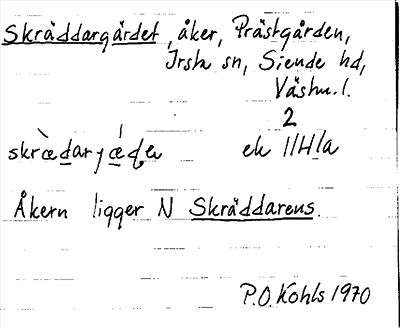 Skräddargärdet, åker, Prästgården,
Irsta sn, Siende hd,
Västm. l.
2
ek 11/H/a
Åkern ligger N Skräddarens.
P.O. Kohls 1970